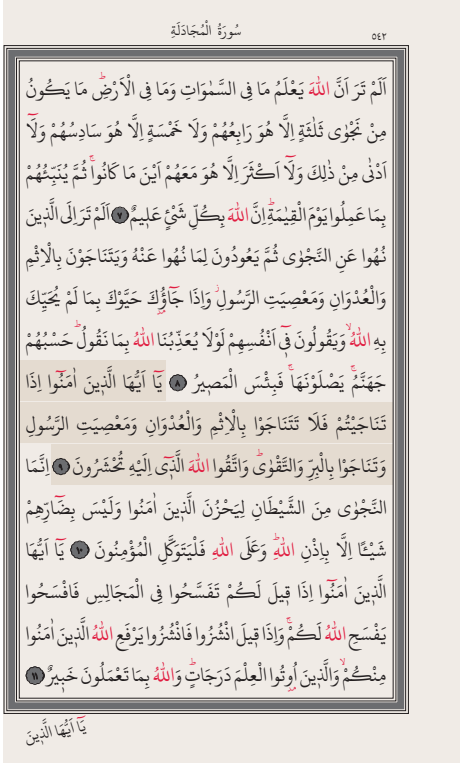 سُورَةُ الْمُجَادَلَةِ
٥٤٢
اَلَمْ تَرَ اَنَّ اللهَ يَعْلَمُ مَا فِى السَّمٰوَاتِ وَمَا فِى الْاَرْضِۜ مَا يَكُونُ
مِنْ نَجْوٰى ثَلٰثَةٍ اِلَّا هُوَ رَابِعُهُمْ وَلَا خَمْسَةٍ اِلَّا هُوَ سَادِسُهُمْ وَلَٓا
اَدْنٰى مِنْ ذٰلِكَ وَلَٓا اَكْثَرَ اِلَّا هُوَ مَعَهُمْ اَيْنَ مَا كَانُواۚ ثُمَّ يُنَبِّئُهُمْ
بِمَا عَمِلُوا يَوْمَ الْقِيٰمَةِۜ اِنَّ اللهَ بِكُلِّ شَیْءٍ عَلِيمٌ ﴿٧﴾ اَلَمْ تَرَ اِلَى الَّذِينَ
نُهُوا عَنِ النَّجْوٰى ثُمَّ يَعُودُونَ لِمَا نُهُوا عَنْهُ وَيَتَنَاجَوْنَ بِالْاِثْمِ
وَالْعُدْوَانِ وَمَعْصِيَتِ الرَّسُولِۘ وَاِذَا جَٓاؤُ۫كَ حَيَّوْكَ بِمَا لَمْ يُحَيِّكَ
بِهِ اللهُۙ وَيَقُولُونَ فِٓى اَنْفُسِهِمْ لَوْلَا يُعَذِّبُنَا اللهُ بِمَا نَقُولُۜ حَسْبُهُمْ
جَهَنَّمُۚ يَصْلَوْنَهَاۚ فَبِئْسَ الْمَصِيرُ ﴿٨﴾ يَٓا اَيُّهَا الَّذِينَ اٰمَنُٓوا اِذَا
تَنَاجَيْتُمْ فَلَا تَتَنَاجَوْا بِالْاِثْمِ وَالْعُدْوَانِ وَمَعْصِيَتِ الرَّسُولِ
وَتَنَاجَوْا بِالْبِرِّ وَالتَّقْوٰىۜ وَاتَّقُوا اللهَ الَّذِٓى اِلَيْهِ تُحْشَرُونَ ﴿٩﴾ اِنَّمَا
النَّجْوٰى مِنَ الشَّيْطَانِ لِيَحْزُنَ الَّذِينَ اٰمَنُوا وَلَيْسَ بِضَٓارِّهِمْ
شَيْـًٔا اِلَّا بِاِذْنِ اللهِۜ وَعَلَى اللهِ فَلْيَتَوَكَّلِ الْمُؤْمِنُونَ ﴿١٠﴾ يَٓا اَيُّهَا
الَّذِينَ اٰمَنُٓوا اِذَا قِيلَ لَكُمْ تَفَسَّحُوا فِى الْمَجَالِسِ فَافْسَحُوا
يَفْسَحِ اللهُ لَكُمْۚ وَاِذَا قِيلَ انْشُزُوا فَانْشُزُوا يَرْفَعِ اللهُ الَّذِينَ اٰمَنُوا
مِنْكُمْۙ وَالَّذِينَ اُو۫تُوا الْعِلْمَ دَرَجَاتٍۜ وَاللهُ بِمَا تَعْمَلُونَ خَبِيرٌ ﴿١١﴾
يَٓا اَيُّهَا الَّذِينَ